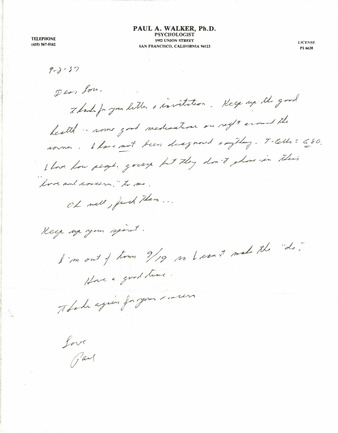 PAUL A. WALKER, Ph.D.
PSYCHOLOGIST
1952 UNION STREET
SAN FRANCISCO, CALIFORNIA 94123
TELEPHONE
(415) 567-0162
LICENSE
9-2-87
Dear Lou,
Thanks for your letter & invitation. Keep up the good
health - some good medications are right around the
corner. I have not been diagnosed anything. T-Cells = 680.
I know how people gossip but they don't phone in their
"love and concern," to me.
Oh well, fuck them...
Keep up your spirit.
I'm out of town 9/19 so I can't make the "do."
Have a good time.
Thanks again for your concern
Love
Paul